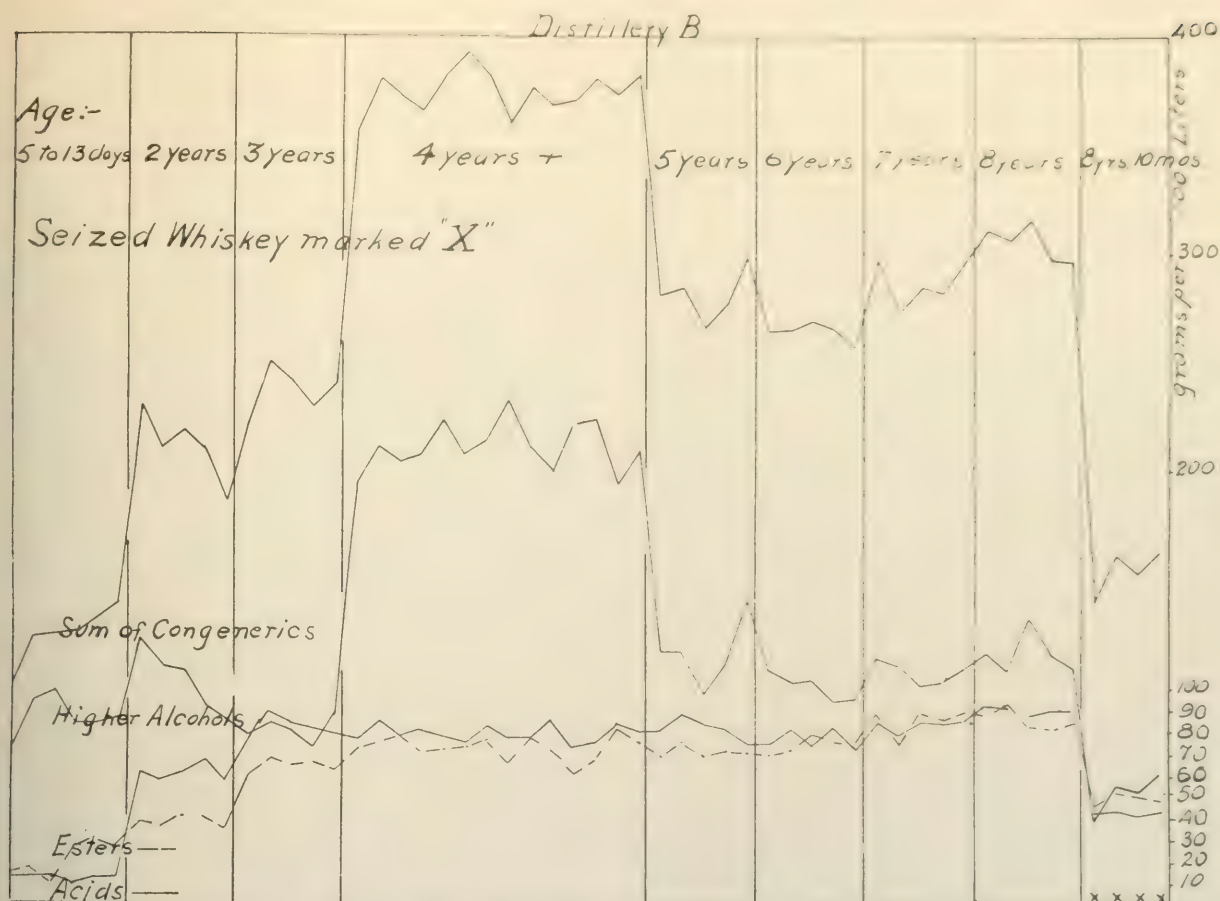 Distillery B
Age:-
5 to 13 days 2 years 3 years 4 years + 5 years 6 years 7 years 8 years 8 yrs. 10 mos
Seized Whiskey marked "X"
Sum of Congenerics
Higher Alcohols
Esters
Acids
400
300
200
100
90
80
70
60
50
40
30
20
10
grams per 100 Liters
x x x x